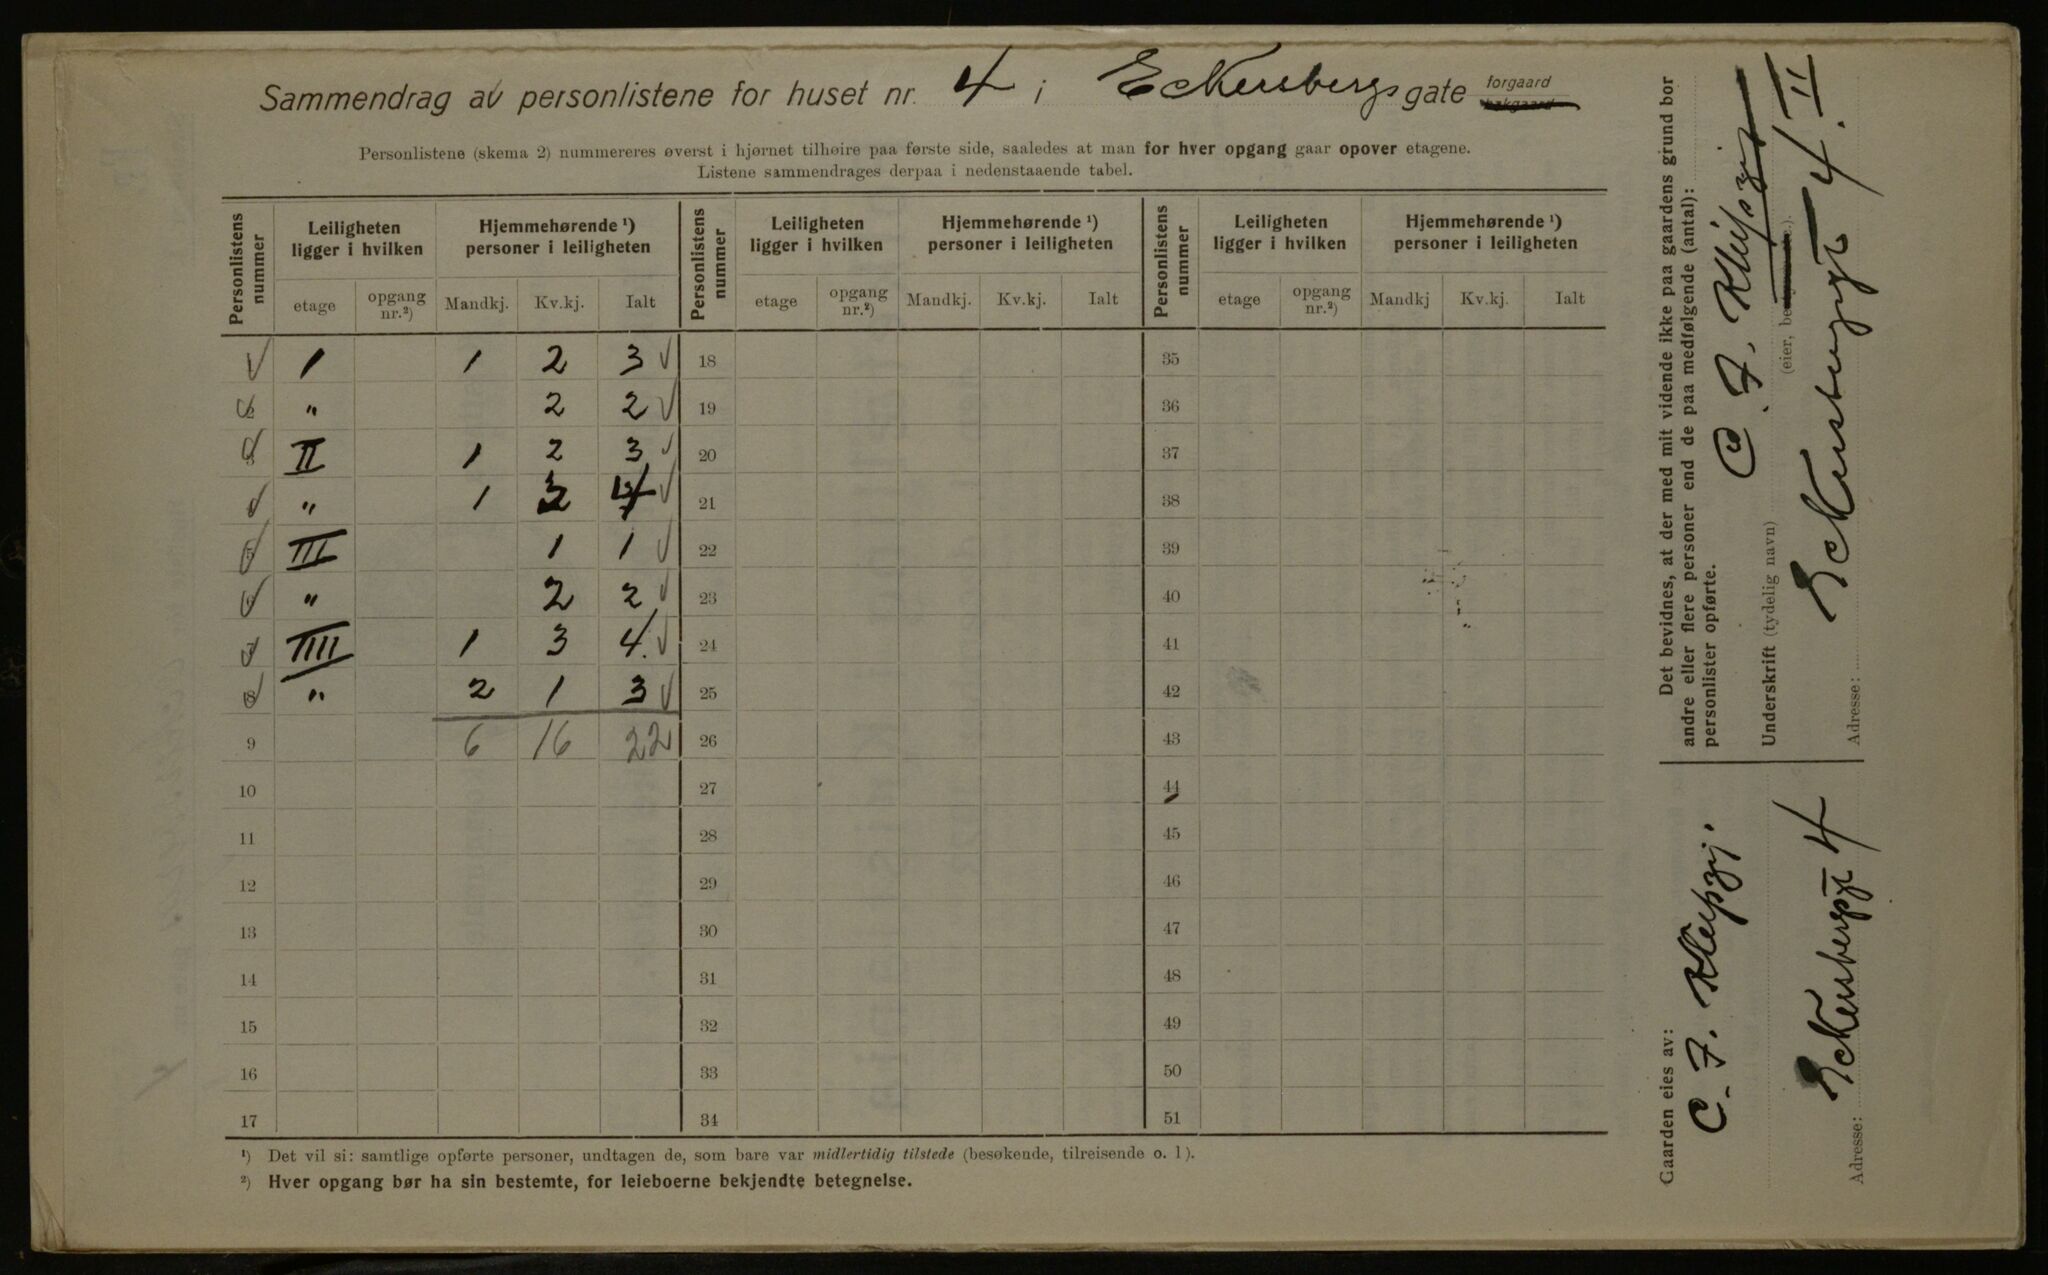 Sammendrag av personlistene for huset nr. 4 i Eckersbergs gate forgaard bakgaard
Personlistene (skema 2) nummereres øverst i hjørnet tilhøire paa første side, saaledes at man for hver opgang gaar opover etagene.
Listene sammendrages derpaa i nedenstaaende tabel.
Personlistens nummer Leiligheten ligger i hvilken Hjemmehørende ¹) personer i leiligheten Personlistens nummer Leiligheten ligger i hvilken Hjemmehørende ¹) personer i leiligheten Personlistens nummer Leiligheten ligger i hvilken Hjemmehørende ¹) personer i leiligheten
etage opgang nr.²) Mandkj. Kv.kj. Ialt etage opgang nr.²) Mandkj. Kv.kj. Ialt etage opgang nr.²) Mandkj Kv.kj. Ialt
1 I 1 2 3 18 35
2 " 2 2 19 36
3 II 1 2 3 20 37
4 " 1 3 4 21 38
5 III 1 1 22 39
6 " 2 2 23 40
7 IIII 1 3 4. 24 41
8 " 2 1 3 25 42
9 6 16 22 26 43
10 27 44
11 28 45
12 29 46
13 30 47
14 31 48
15 32 49
16 33 50
17 34 51
¹) Det vil si: samtlige opførte personer, undtagen de, som bare var midlertidig tilstede (besøkende, tilreisende o. l).
²) Hver opgang bør ha sin bestemte, for leieboerne bekjendte betegnelse.
Det bevidnes, at der med mit vidende ikke paa gaardens grund bor
andre eller flere personer end de paa medfølgende (antal):
personlister opførte.
C. F. Kleipzig
Underskrift (tydelig navn) (eier, bestyrer etc.).
Eckersbergsgt 4. II
Adresse:
Gaarden eies av:
C. F. Kleipzig.
Eckersbergsgt 4
Adresse: